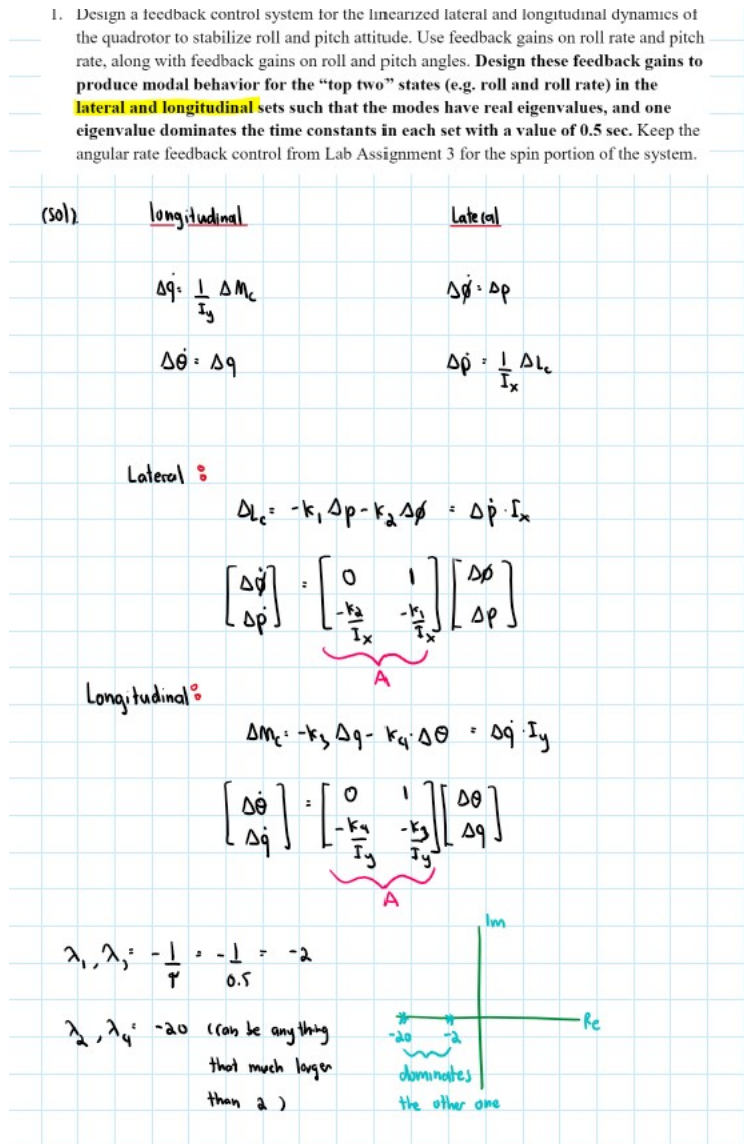 1. Design a feedback control system for the linearized lateral and longitudinal dynamics of
the quadrotor to stabilize roll and pitch attitude. Use feedback gains on roll rate and pitch
rate, along with feedback gains on roll and pitch angles. Design these feedback gains to
produce modal behavior for the “top two” states (e.g. roll and roll rate) in the
lateral and longitudinal sets such that the modes have real eigenvalues, and one
eigenvalue dominates the time constants in each set with a value of 0.5 sec. Keep the
angular rate feedback control from Lab Assignment 3 for the spin portion of the system.
(sol) longitudinal Lateral
Δq̇ = 1/Iy ΔMc Δφ̇ = Δp
Δθ̇ = Δq Δṗ = 1/Ix ΔLc
Lateral :
ΔLc = -k1 Δp - k2 Δφ = Δṗ · Ix
[Δφ̇ Δṗ] = [0 1 -k2/Ix -k1/Ix] [Δφ Δp]
A
Longitudinal :
ΔMc = -k3 Δq - k4 · Δθ = Δq̇ · Iy
[Δθ̇ Δq̇] = [0 1 -k4/Iy -k3/Iy] [Δθ Δq]
A
λ1, λ3 = -1/τ = -1/0.5 = -2
λ2, λ4 = -20 (can be anything
that much larger
than 2)
Im
Re
-20 -2
dominates
the other one